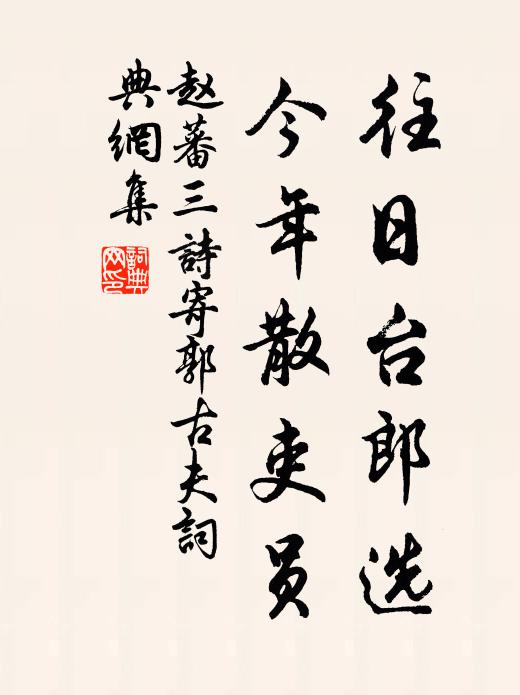 往日台郎选
今年散吏员
赵蕃三詩寄郭古夫詞
典網集
詞典
网印